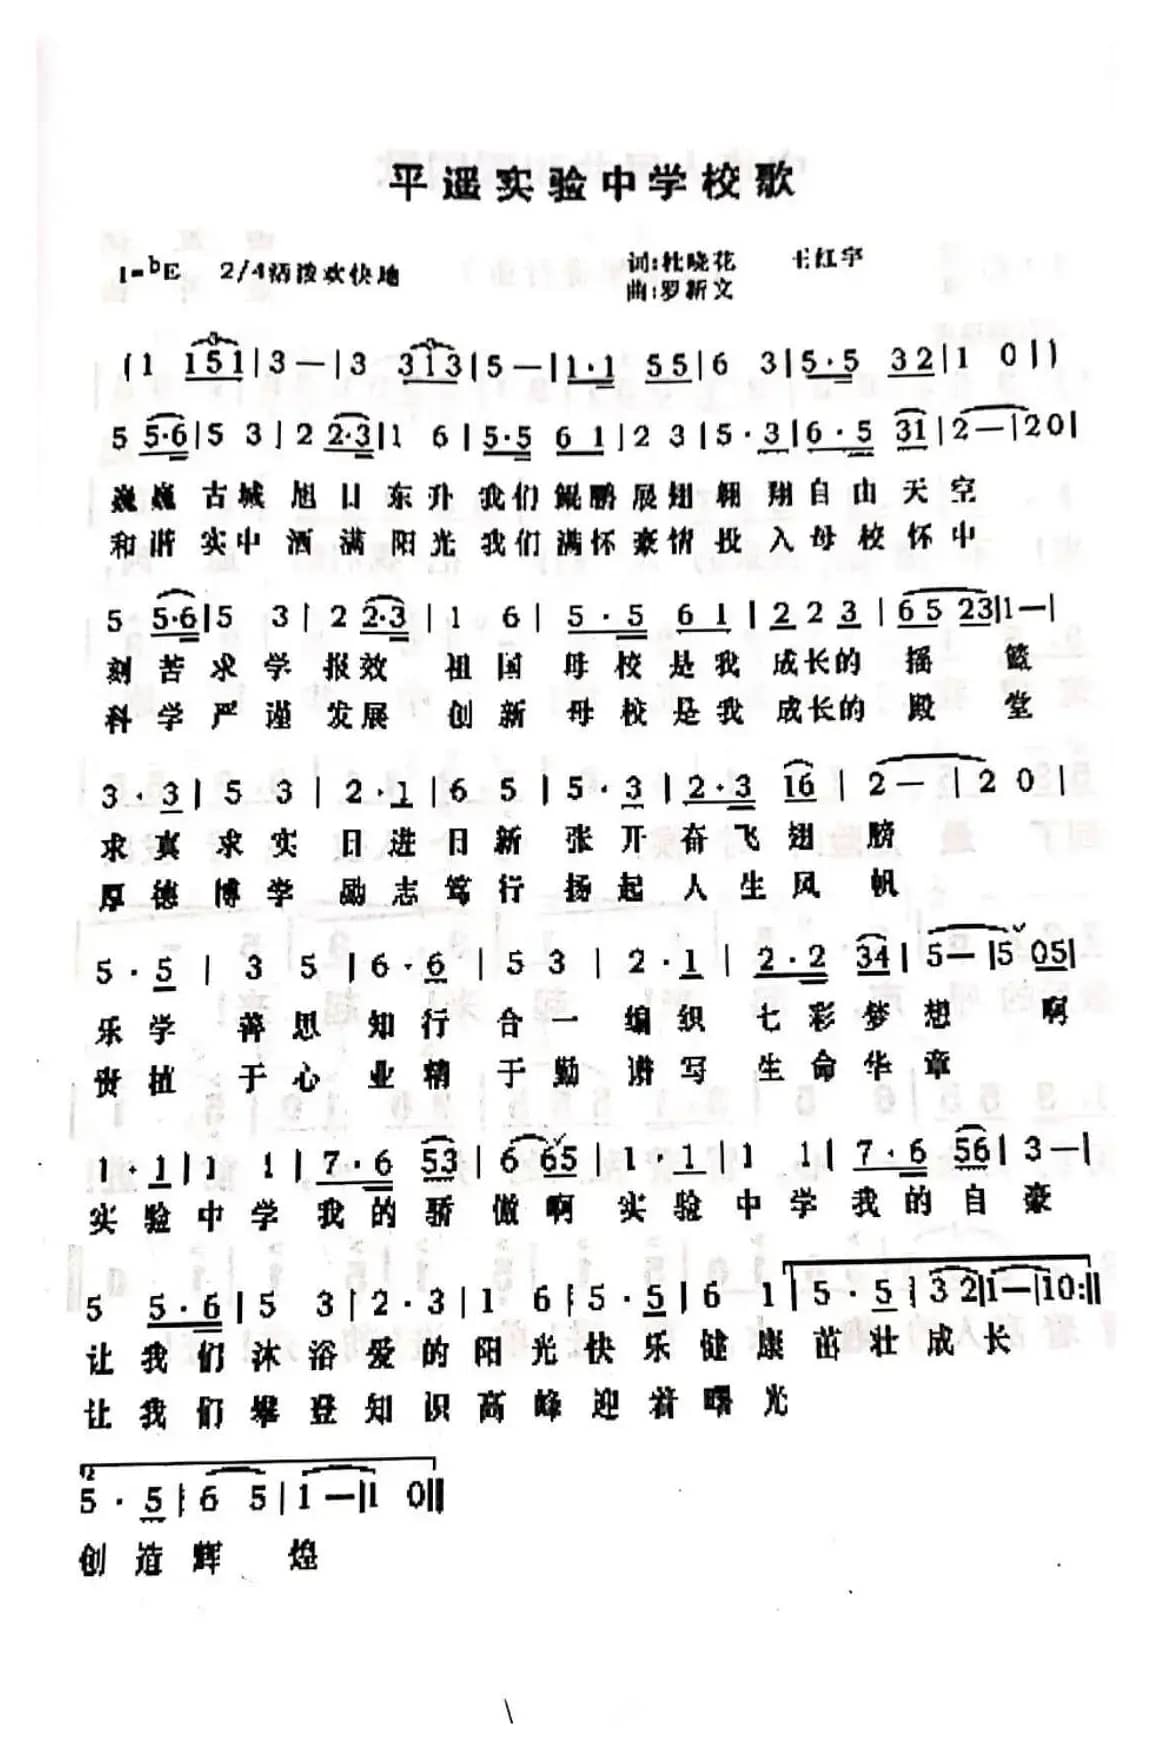 平遥实验中学校歌
1=bE 2/4 活泼欢快地 词:杜晓花 王红宇
曲:罗新文
(1 151|3—|3 313|5—|1·1 55|6 3|5·5 32|1 0|)
5 5·6|5 3|2 2·3|1 6|5·5 61|2 3|5·3|6·5 31|2—|20|
巍巍古城旭日东升我们鲲鹏展翅翱翔自由天空
和谐实中洒满阳光我们满怀豪情投入母校怀中
5 5·6|5 3|2 2·3|1 6|5·5 61|2 2 3|65 23|1—|
刻苦求学报效祖国母校是我成长的摇篮
科学严谨发展创新母校是我成长的殿堂
3·3|5 3|2·1|6 5|5·3|2·3 16|2—|2 0|
求真求实日进日新张开奋飞翅膀
厚德博学励志笃行扬起人生风帆
5·5|3 5|6·6|5 3|2·1|2·2 34|5—|5 05|
乐学善思知行合一编织七彩梦想啊
贵植于心业精于勤谱写生命华章
1·1|1 1|7·6 53|6 65|1·1|1 1|7·6 56|3—|
实验中学我的骄傲啊实验中学我的自豪
5 5·6|5 3|2·3|1 6|5·5|6 1|5·5|32|1—|10:||
让我们沐浴爱的阳光快乐健康茁壮成长
让我们攀登知识高峰迎着曙光
2
5·5|6 5|1—|1 0||
创造辉煌